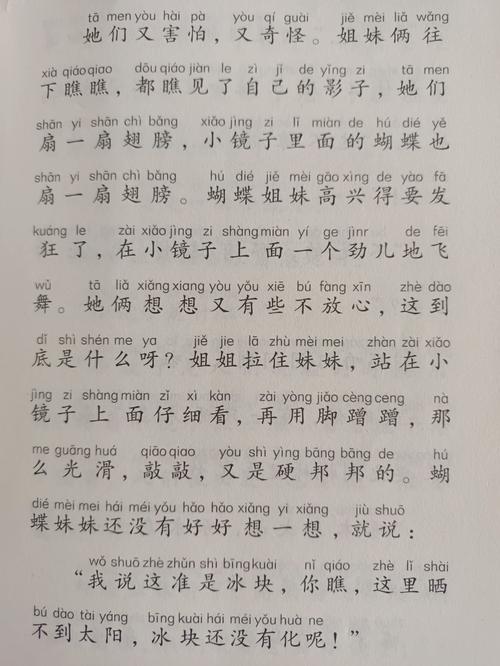 tā men yòu hài pà yòu qí guài jiě mèi liǎ wǎng
她们又害怕，又奇怪。姐妹俩往
xià qiáo qiao dōu qiáo jiàn le zì jǐ de yǐng zi tā men
下瞧瞧，都瞧见了自己的影子，她们
shān yi shān chì bǎng xiǎo jìng zi lǐ miàn de hú dié yě
扇一扇翅膀，小镜子里面的蝴蝶也
shān yi shān chì bǎng hú dié jiě mèi gāo xìng de yào fā
扇一扇翅膀。蝴蝶姐妹高兴得要发
kuáng le zài xiǎo jìng zi shàng miàn yí ge jìnr de fēi
狂了，在小镜子上面一个劲儿地飞
wǔ tā liǎ xiǎng xiang yòu yǒu xiē bú fàng xīn zhè dào
舞。她俩想想又有些不放心，这到
dǐ shì shén me ya jiě jie lā zhù mèi mei zhàn zài xiǎo
底是什么呀？姐姐拉住妹妹，站在小
jìng zi shàng miàn zǐ xì kàn zài yòng jiǎo cèng ceng nà
镜子上面仔细看，再用脚蹭蹭，那
me guāng huá qiāo qiao yòu shì yìng bāng bāng de hú
么光滑，敲敲，又是硬邦邦的。蝴
dié mèi mei hái méi yǒu hǎo hǎo xiǎng yi xiǎng jiù shuō
蝶妹妹还没有好好想一想，就说：
wǒ shuō zhè zhǔn shì bīng kuài nǐ qiáo zhè lǐ shài
“我说这准是冰块，你瞧，这里晒
bú dào tài yáng bīng kuài hái méi yǒu huà ne
不到太阳，冰块还没有化呢！”